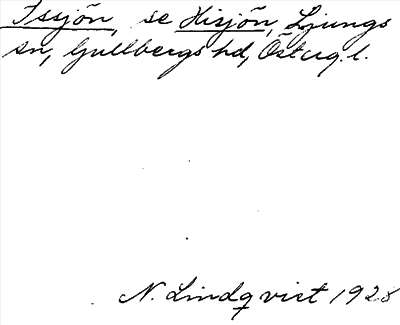 Issjön, se Hisjön, Ljungs
sn, Gullbergs hd, Östergt. l.
N. Lindqvist 1928